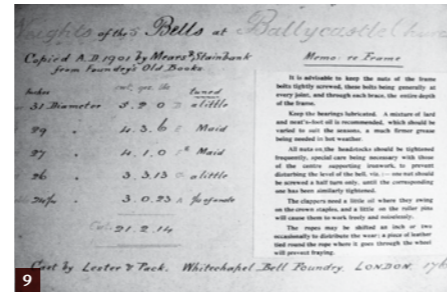 Weights of the 5 Bells at Ballycastle
Copied A.D. 1901 by Mears & Stainbank
from Foundry's Old Books
Inches cwt. qrs. lbs tuned
31 Diameter 5.2.0 a little
29 " 4.3.6 Maid
27 " 4.1.0 Maid
26 " 3.3.13 a little
3.0.23
21.2.14
Cast by Lester & Pack. Whitechapel Bell Foundry. LONDON.
Memo: re Frame
It is advisable to keep the nuts of the frame
bolts tightly screwed, these bolts being generally at
every joint, and through each brace, the entire depth
of the frame.
Keep the bearings lubricated. A mixture of lard
and neat's-foot oil is recommended, which should be
varied to suit the seasons, a much firmer grease
being needed in hot weather.
All nuts on the headstocks should be tightened
frequently, special care being necessary with those
of the centre supporting ironwork, to prevent
disturbing the level of the bell, viz. :— one nut should
be screwed a half turn only, until the corresponding
one has been similarly tightened.
The clappers need a little oil where they swing
on the crown staples, and a little on the roller pins
will cause them to work freely and noiselessly.
The ropes may be shifted an inch or two
occasionally to distribute the wear; a piece of leather
tied round the rope where it goes through the wheel
will prevent fraying.
9